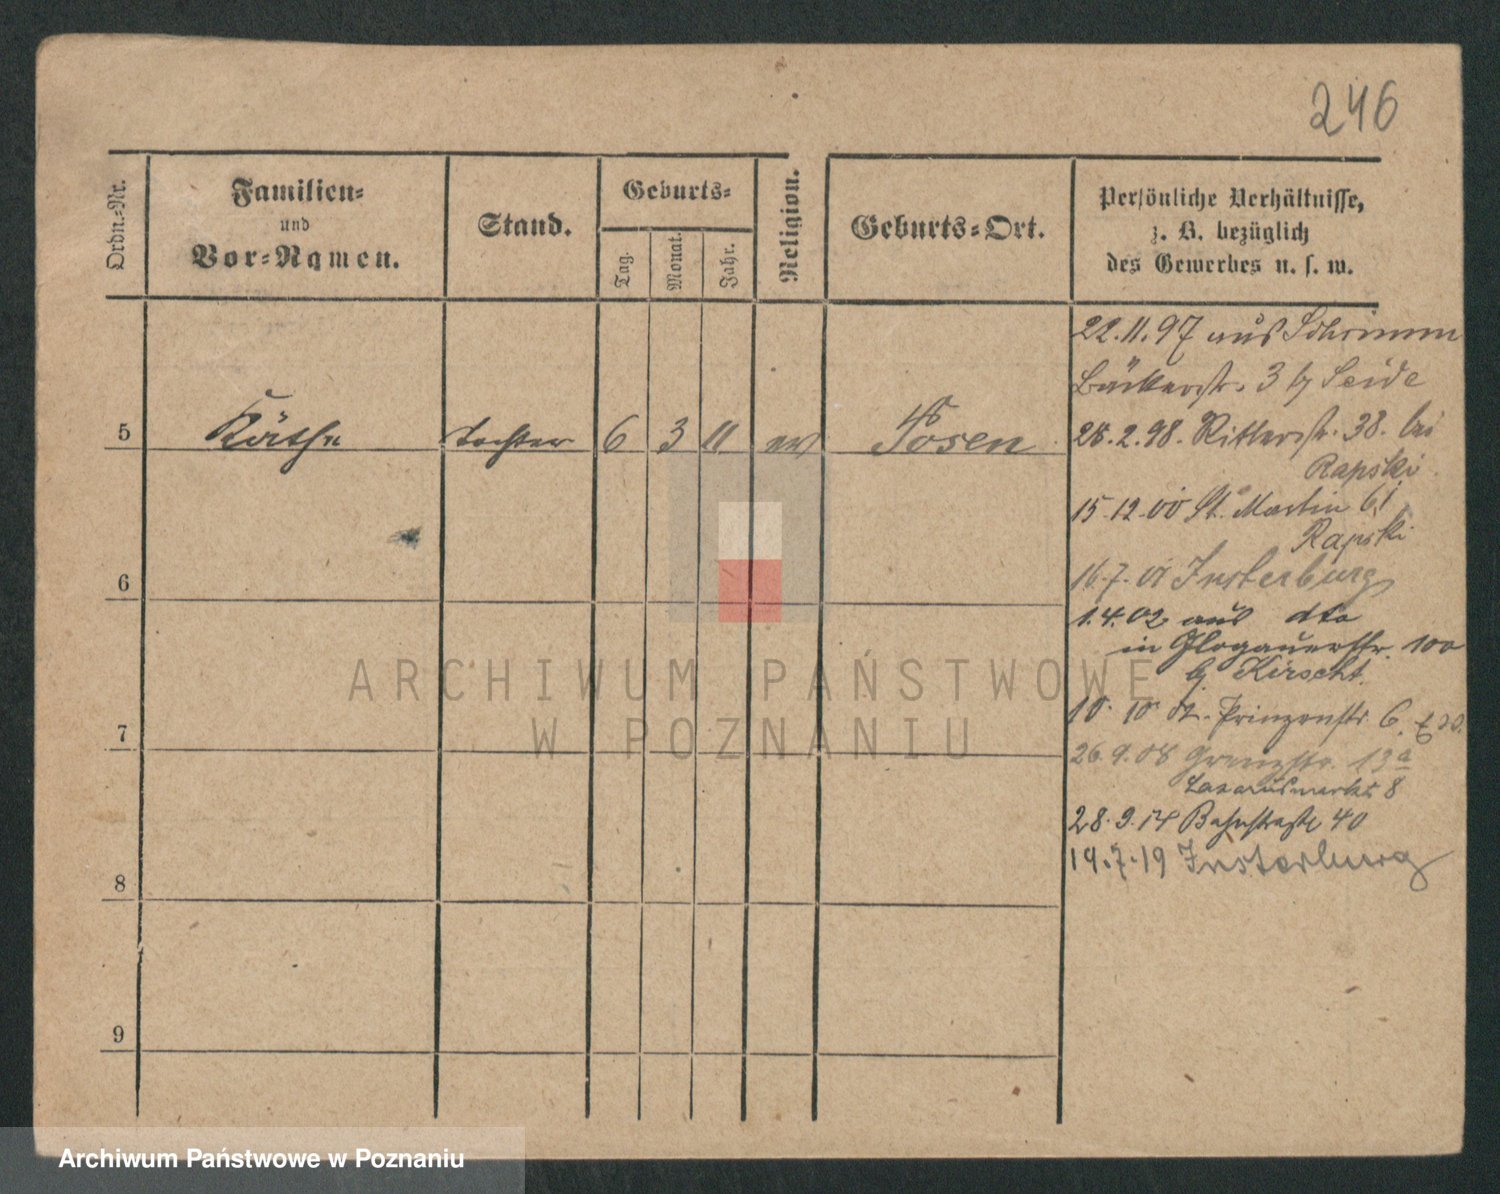 246
Ordn.-Nr.
Familien-
und
Vor-Namen.
Stand.
Geburts-
Tag.
Monat.
Jahr.
Religion.
Geburts-Ort.
Persönliche Verhältnisse,
z. B. bezüglich
des Gewerbes u. s. w.
5 Käthe Tochter 6 3 11 ev Posen
6
7
8
9
22.11.97 aus Schrimm
Bäckerstr. 3 b/ Seide
28.2.98. Ritterstr. 38. bei
Rapski
15.12.00 St. Martin 61
Rapski
16.7.01 Insterburg
1.4.02 aus dto
in Glogauerstr. 100
b/ Kirscht.
10. 10. 02. Prinzenstr. 6.
26.9.08 Grenzstr. 13a
Lazarusmarkt 8
28.9.14 Bahnstraße 40
19.7.19 Insterburg
ARCHIWUM PAŃSTWOWE
W POZNANIU
Archiwum Państwowe w Poznaniu